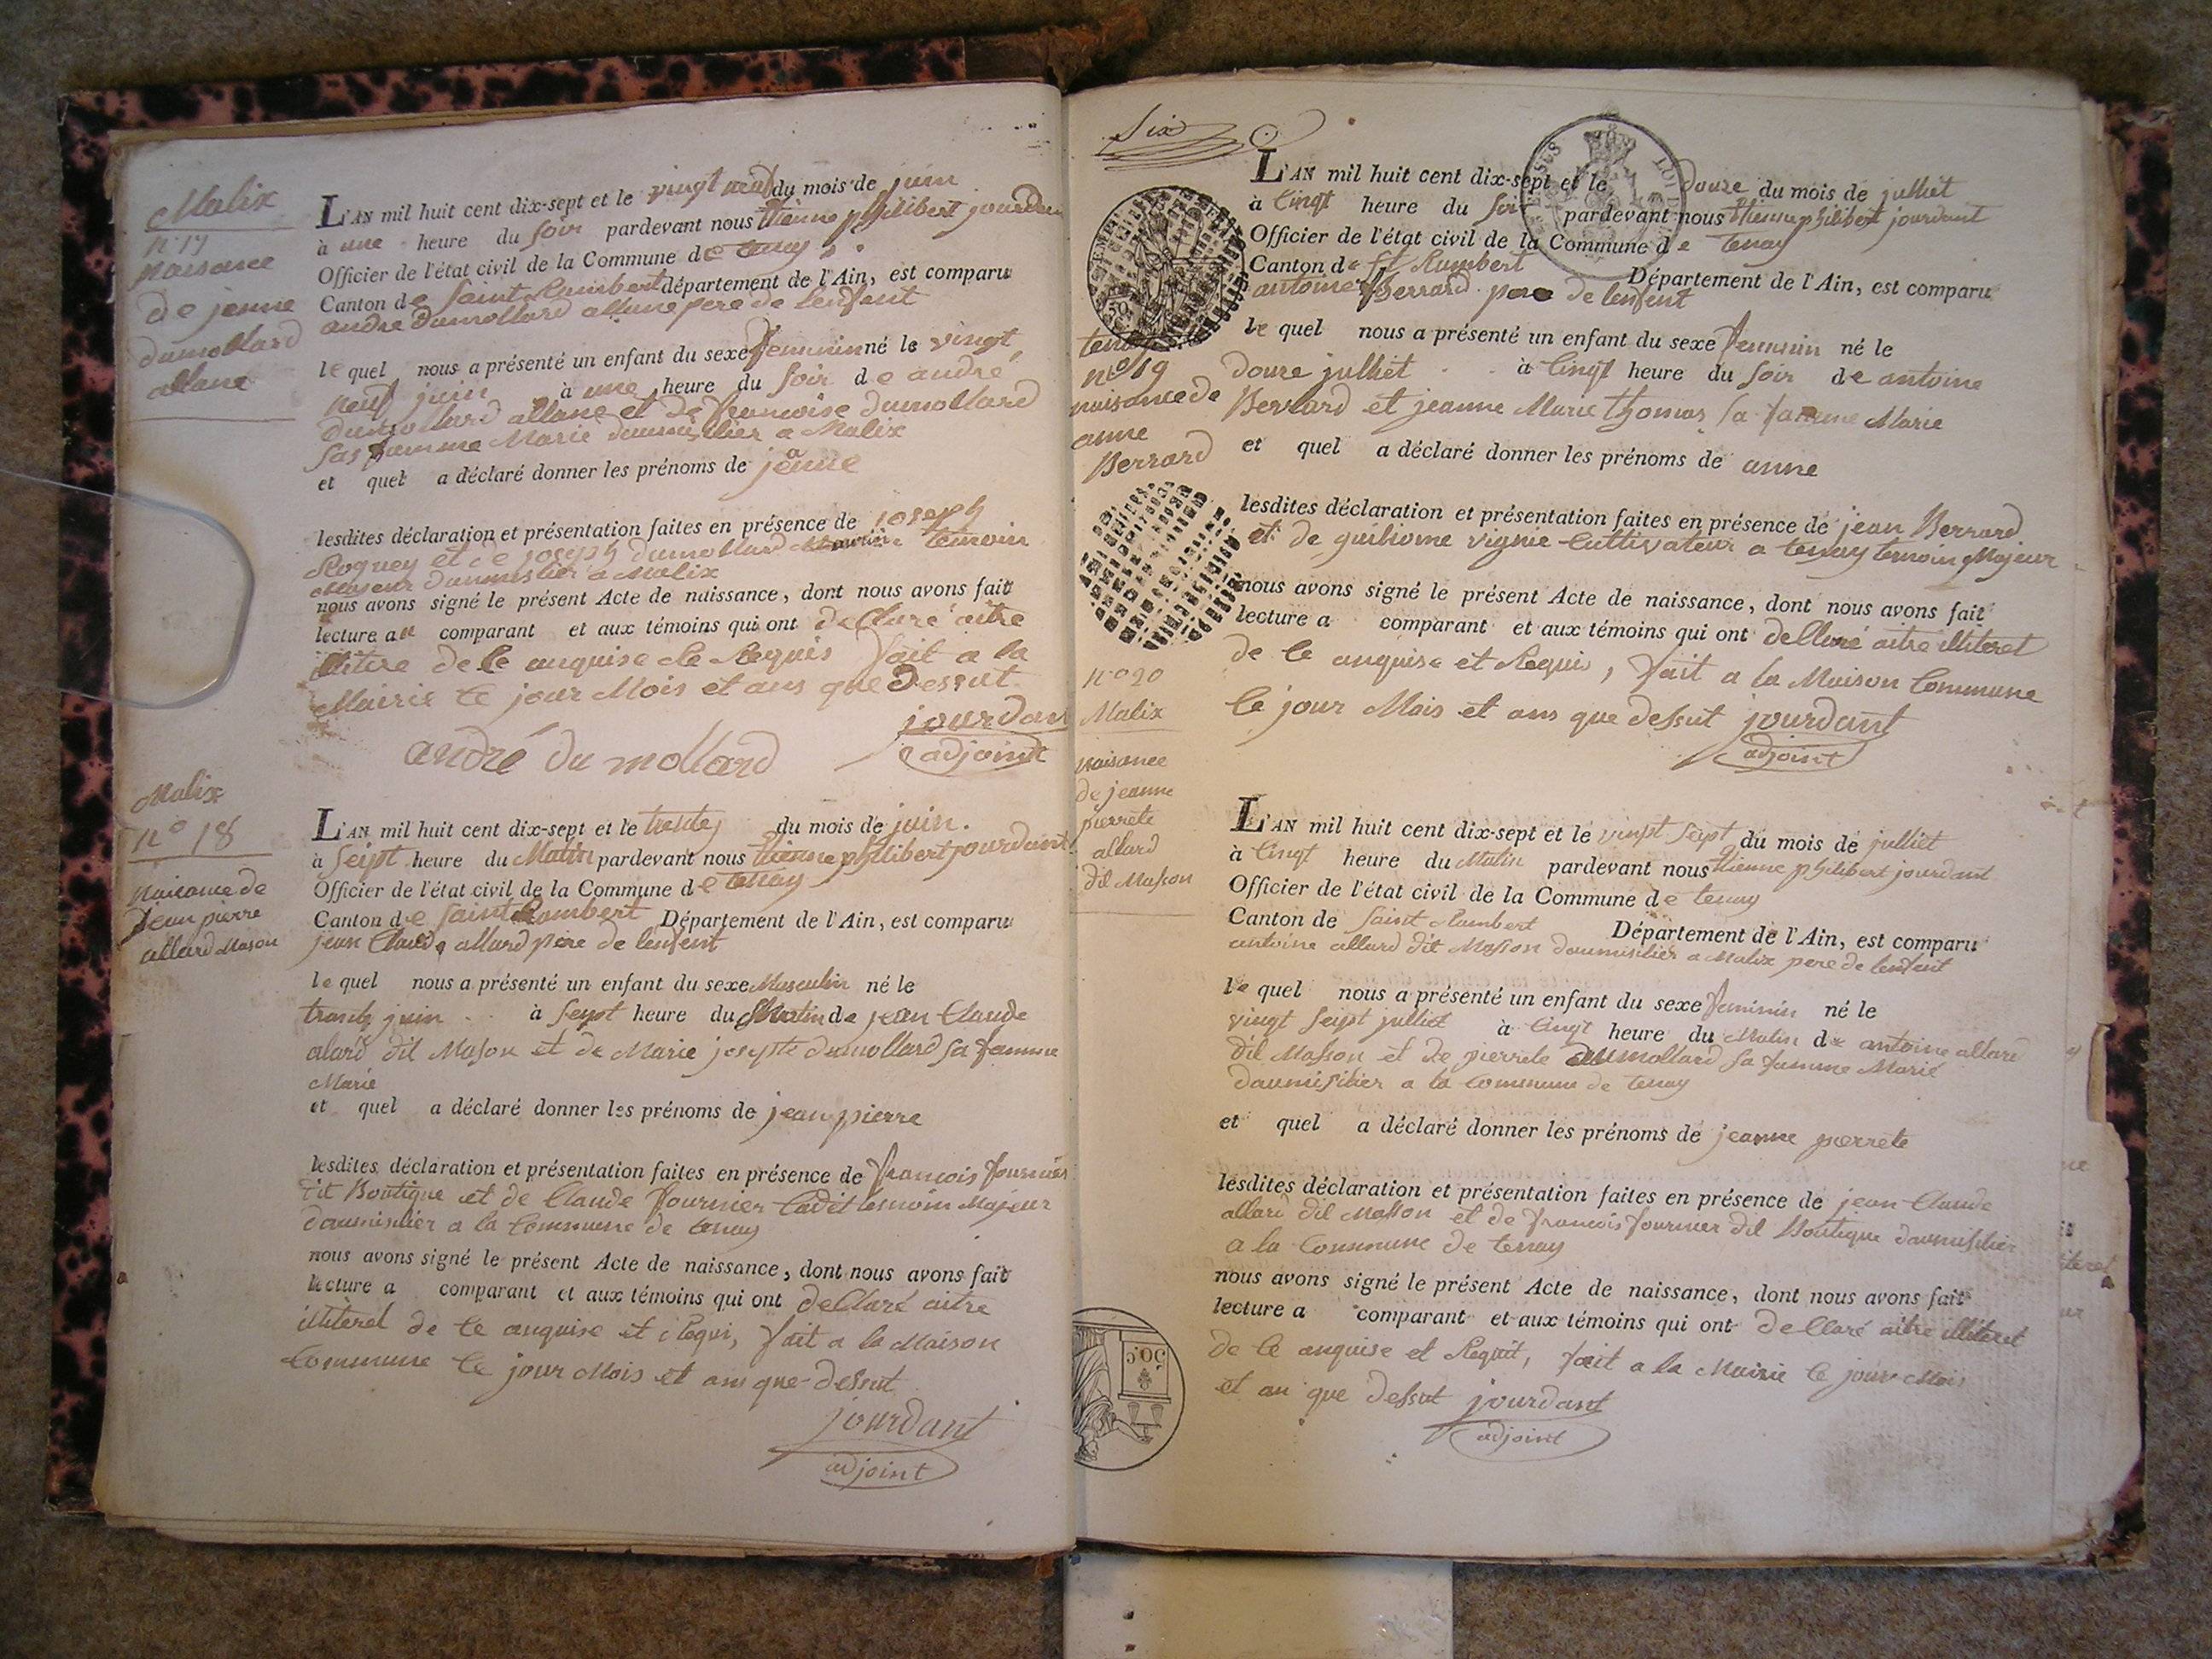 Malix
n° 17
naisance
de jenne
dumollard
allane
L'AN mil huit cent dix-sept et le vingt neuf du mois de juin
à une heure du soir pardevant nous Etienne philibert jourdan
Officier de l'état civil de la Commune de tenay
Canton de Saint Rambert département de l'Ain, est comparu
andre dumollard allane pere de lenfent
le quel nous a présenté un enfant du sexe femminin né le vingt
neuf juin à une heure du soir de andré
dumollard allane et de francoise dumollard
sas famme Marie daumisilier a Malix
et quel a déclaré donner les prénoms de jeanne
lesdites déclaration et présentation faites en présence de joseph
Roguey et de joseph dumollard temoin
Majeur daumisilier a Malix
nous avons signé le présent Acte de naissance, dont nous avons fait
lecture au comparant et aux témoins qui ont dellaré aitre
de le anquise de Requis fait a la
Mairie le jour Mois et ans que dessut
jourdan
adjoint
andré du mollard
Malix
n° 18
naisance de
jean pierre
allard Mason
L'AN mil huit cent dix-sept et le trente du mois de juin.
à seipt heure du Matin pardevant nous Etienne philibert jourdant
Officier de l'état civil de la Commune de tenay
Canton de Saint Rambert Département de l'Ain, est comparu
jean Claude allard père de lenfent
le quel nous a présenté un enfant du sexe Masculin né le
trente juin à seipt heure du Matin de jean Claude
alard dit Mason et de Marie josepte dumollard sa famme
Marie
et quel a déclaré donner les prénoms de jean pierre
lesdites déclaration et présentation faites en présence de francois fournier
dit Boutique et de Claude fournier Cadet temoin Majeur
daumisilier a la Commune de tenay
nous avons signé le présent Acte de naissance, dont nous avons fait
lecture a comparant et aux témoins qui ont dellaré aitre
illiteret de le anquise et Requi, fait a la Maison
Commune le jour Mois et ans que dessut
jourdant
adjoint
Six
L'AN mil huit cent dix-sept et le douze du mois de julliet
à Cinqt heure du soir pardevant nous Etienne philibert jourdant
Officier de l'état civil de la Commune de tenay
Canton de St Rambert Département de l'Ain, est comparu
antoine Berrard pere de lenfent
tenay
n° 19
naisance de
anne
Berrard
le quel nous a présenté un enfant du sexe femmin né le
douze julliet à Cinqt heure du soir de antoine
Berrard et jeanne Marie thomas sa famme Marie
et quel a déclaré donner les prénoms de anne
lesdites déclaration et présentation faites en présence de jean Berrard
et de guilliome vignie Cultivateur a tenay temoin Majeur
nous avons signé le présent Acte de naissance, dont nous avons fait
lecture a comparant et aux témoins qui ont dellaré aitre illiteret
de le anquise et Requis, fait a la Maison Commune
le jour Mois et ans que dessut jourdant
adjoint
n° 20
Malix
naisance
de jeanne
pierrete
allard
dit Masson
L'AN mil huit cent dix-sept et le vingt seipt du mois de julliet
à Cinqt heure du Matin pardevant nous Etienne philibert jourdant
Officier de l'état civil de la Commune de tenay
Canton de Saint Rambert Département de l'Ain, est comparu
antoine allard dit Masson daumisilier a Malix pere de lenfent
le quel nous a présenté un enfant du sexe feminin né le
vingt seipt julliet à Cinqt heure du Matin de antoine allard
dit Masson et de pierrete dumollard sa famme Marié
daumisilier a la Commune de tenay
et quel a déclaré donner les prénoms de jeanne pierrete
lesdites déclaration et présentation faites en présence de jean Claude
allard dit Masson et de francois fournier dit Boutique daumisilier
a la Commune de tenay
nous avons signé le présent Acte de naissance, dont nous avons fait
lecture a comparant et aux témoins qui ont dellaré aitre illiteret
de le anquise et Requit, fait a la Mairie le jour Mois
et an que dessut jourdant
adjoint
50 C.